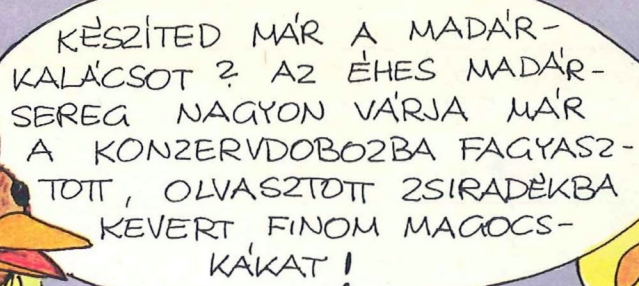 KÉSZÍTED MÁR A MADÁR-
KALÁCSOT? AZ ÉHES MADÁR-
SEREG NAGYON VÁRJA MÁR
A KONZERVDOBOZBA FAGYASZ-
TOTT, OLVASZTOTT ZSIRADÉKBA
KEVERT FINOM MAGOCS-
KÁKAT!